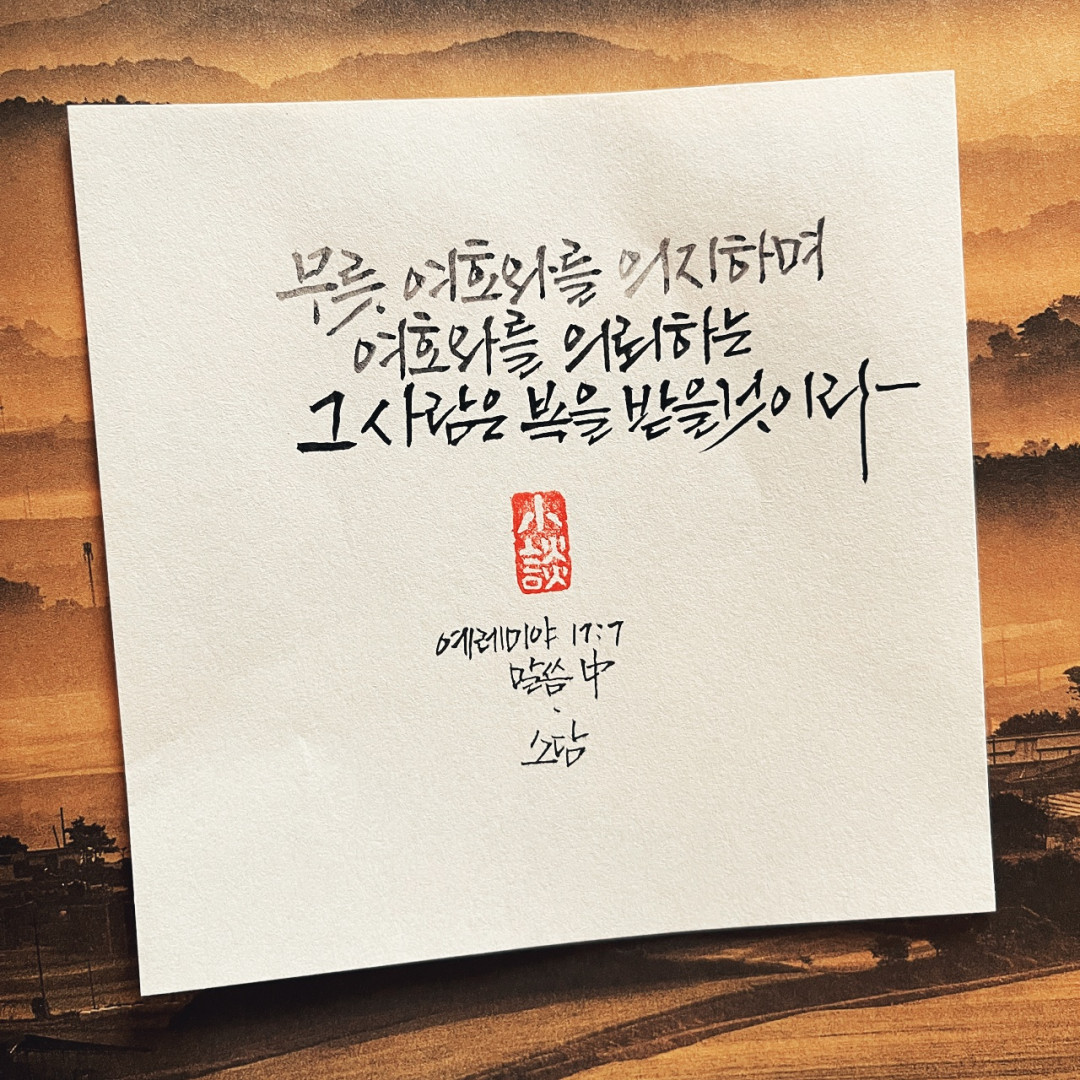 무릇, 여호와를 의지하며
여호와를 의뢰하는
그 사람은 복을 받을것이라
小談
예레미야 17:7
말씀 中
·
소담